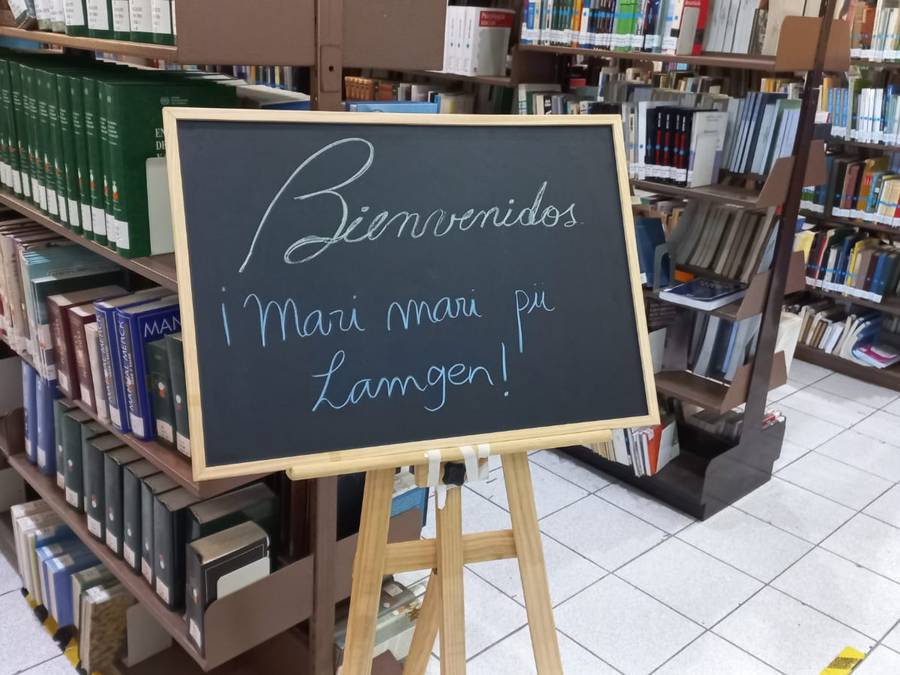 Bienvenidos
¡Mari mari pü
Lamgen!
MAN